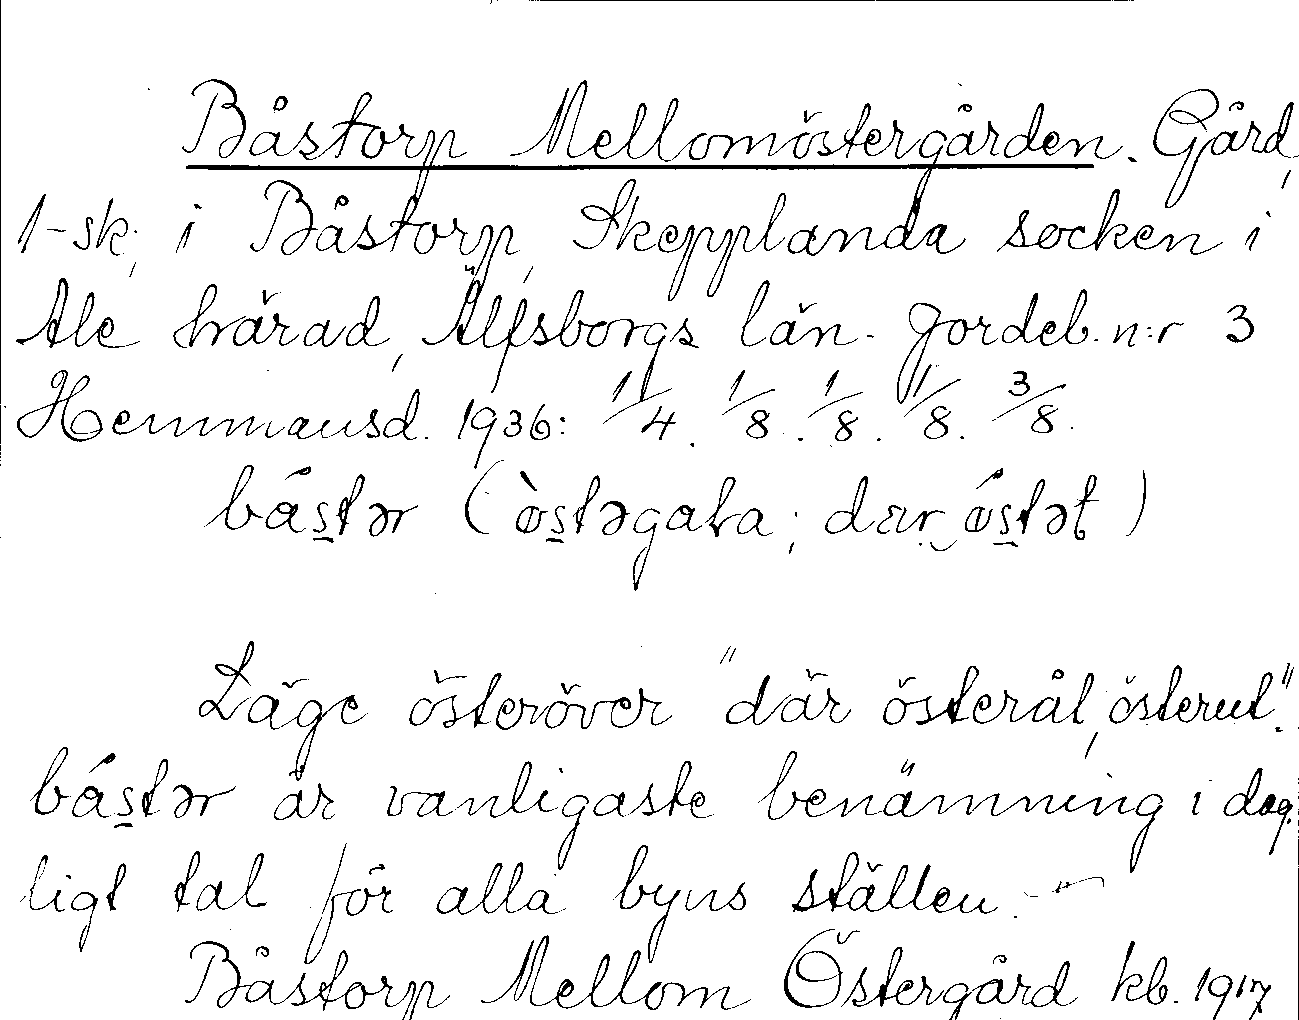 Båstorp Mellomöstergården. Gård,
1-sk; i Båstorp, Skepplanda socken i
Ale härad, Älfsborgs län. Jordeb. n:r 3
Hemmansd. 1936: 1/4. 1/8. 1/8. 1/8. 3/8.
bástər (òstəgaɫa; dær óstət)
Läge österöver "där österål, österut".
bástər är vanligaste benämning i dag-
ligt tal för alla byns ställen. -
Båstorp Mellom Östergård kb. 1917